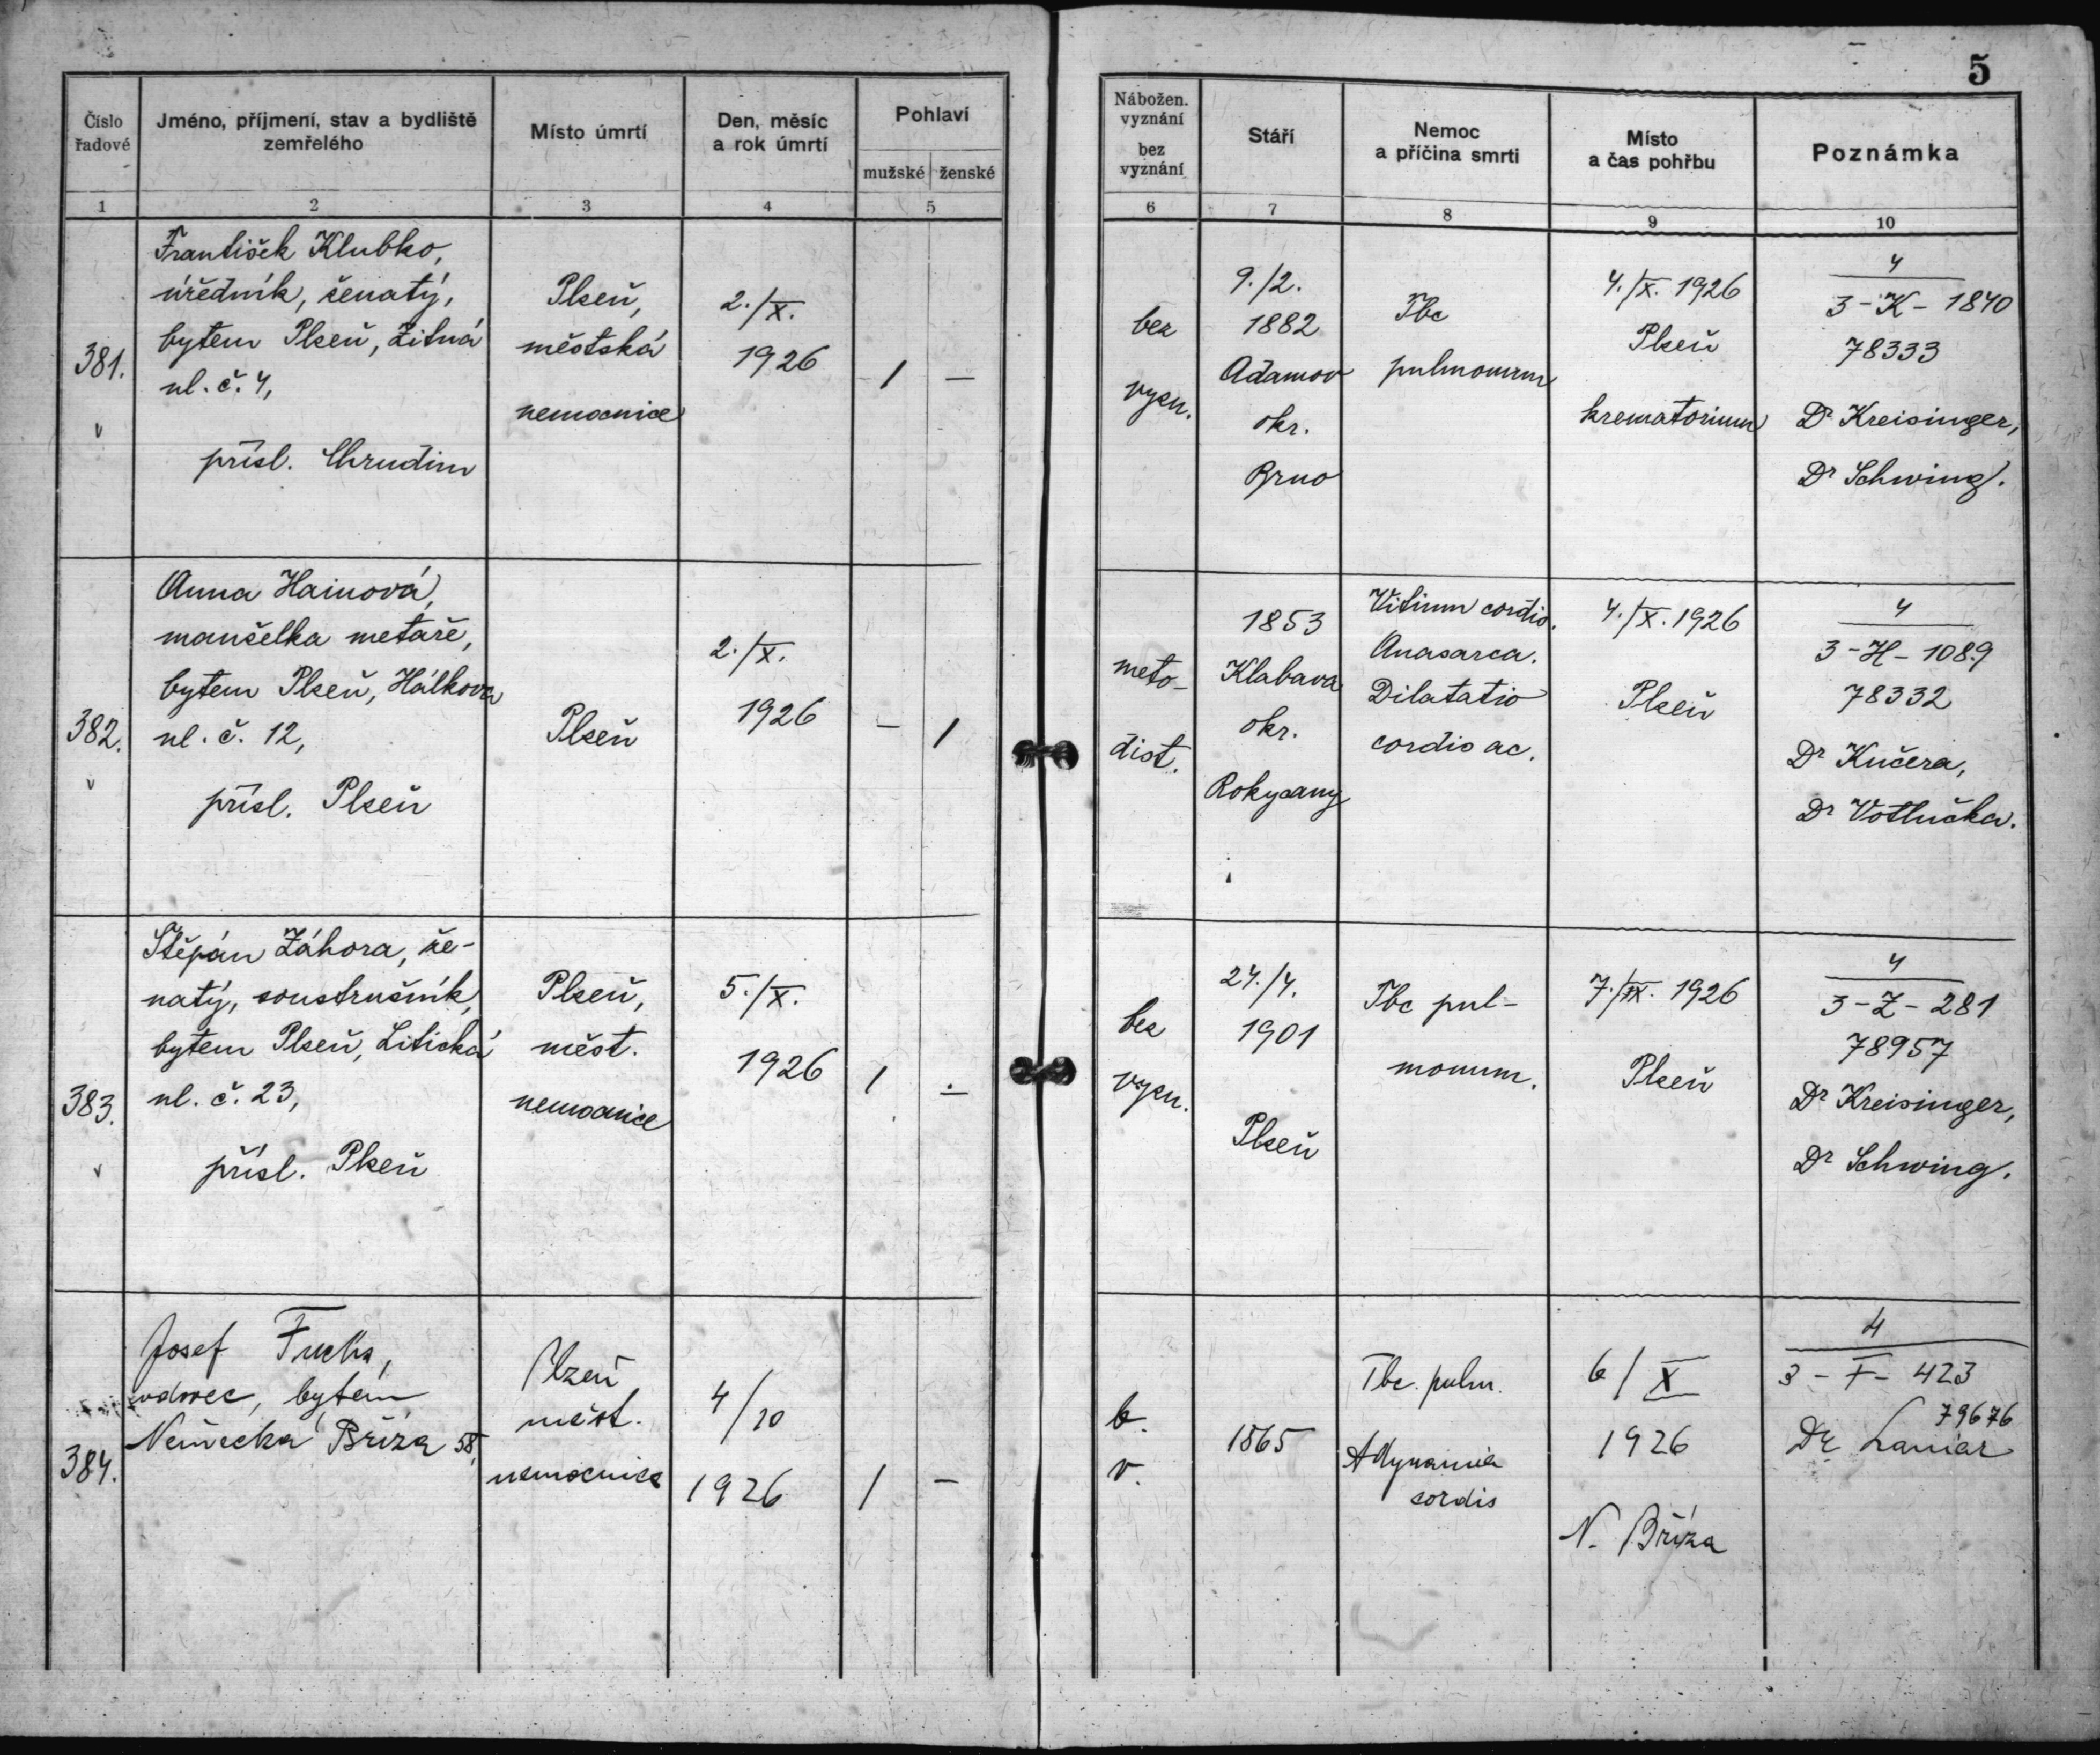 5
Číslo
řadové
Jméno, příjmení, stav a bydliště
zemřelého
Místo úmrtí
Den, měsíc
a rok úmrtí
Pohlaví
mužské ženské
Nábožen.
vyznání
bez
vyznání
Stáří
Nemoc
a příčina smrti
Místo
a čas pohřbu
Poznámka
1 2 3 4 5 6 7 8 9 10
381.
František Klubko,
úředník, ženatý,
bytem Plzeň, Žitná
ul. č. 4,
přísl. Chrudim
Plzeň,
městská
nemocnice
2./X.
1926
1 —
bez
vyzn.
9./2.
1882
Adamov
okr.
Brno
Tbc
pulmonum
4./X. 1926
Plzeň
krematorium
4
3-K-1840
78333
Dr Kreisinger,
Dr Schwing.
382.
Anna Hainová,
manželka metaře,
bytem Plzeň, Hálkova
ul. č. 12,
přísl. Plzeň
Plzeň
2./X.
1926
— 1
meto-
dist.
1853
Klabava
okr.
Rokycany
Vitium cordis.
Anasarca.
Dilatatio
cordis ac.
4./X. 1926
Plzeň
4
3-H-1089
78332
Dr Kučera,
Dr Votlučka.
383.
Štěpán Záhora, že-
natý, soustružník,
bytem Plzeň, Litická
ul. č. 23,
přísl. Plzeň
Plzeň,
měst.
nemocnice
5./X.
1926
1 —
bez
vyzn.
24./4.
1901
Plzeň
Tbc pul-
monum.
7./X. 1926
Plzeň
4
3-Z-281
78957
Dr Kreisinger,
Dr Schwing.
384.
Josef Fuchs,
vdovec, bytem
Německá Bříza 58,
Plzeň
měst.
nemocnice
4/10
1926
1 —
b.
v.
1865
Tbc. pulm.
Adynamia
cordis
6/X
1926
N. Bříza
4
3-F-423
79676
Dr